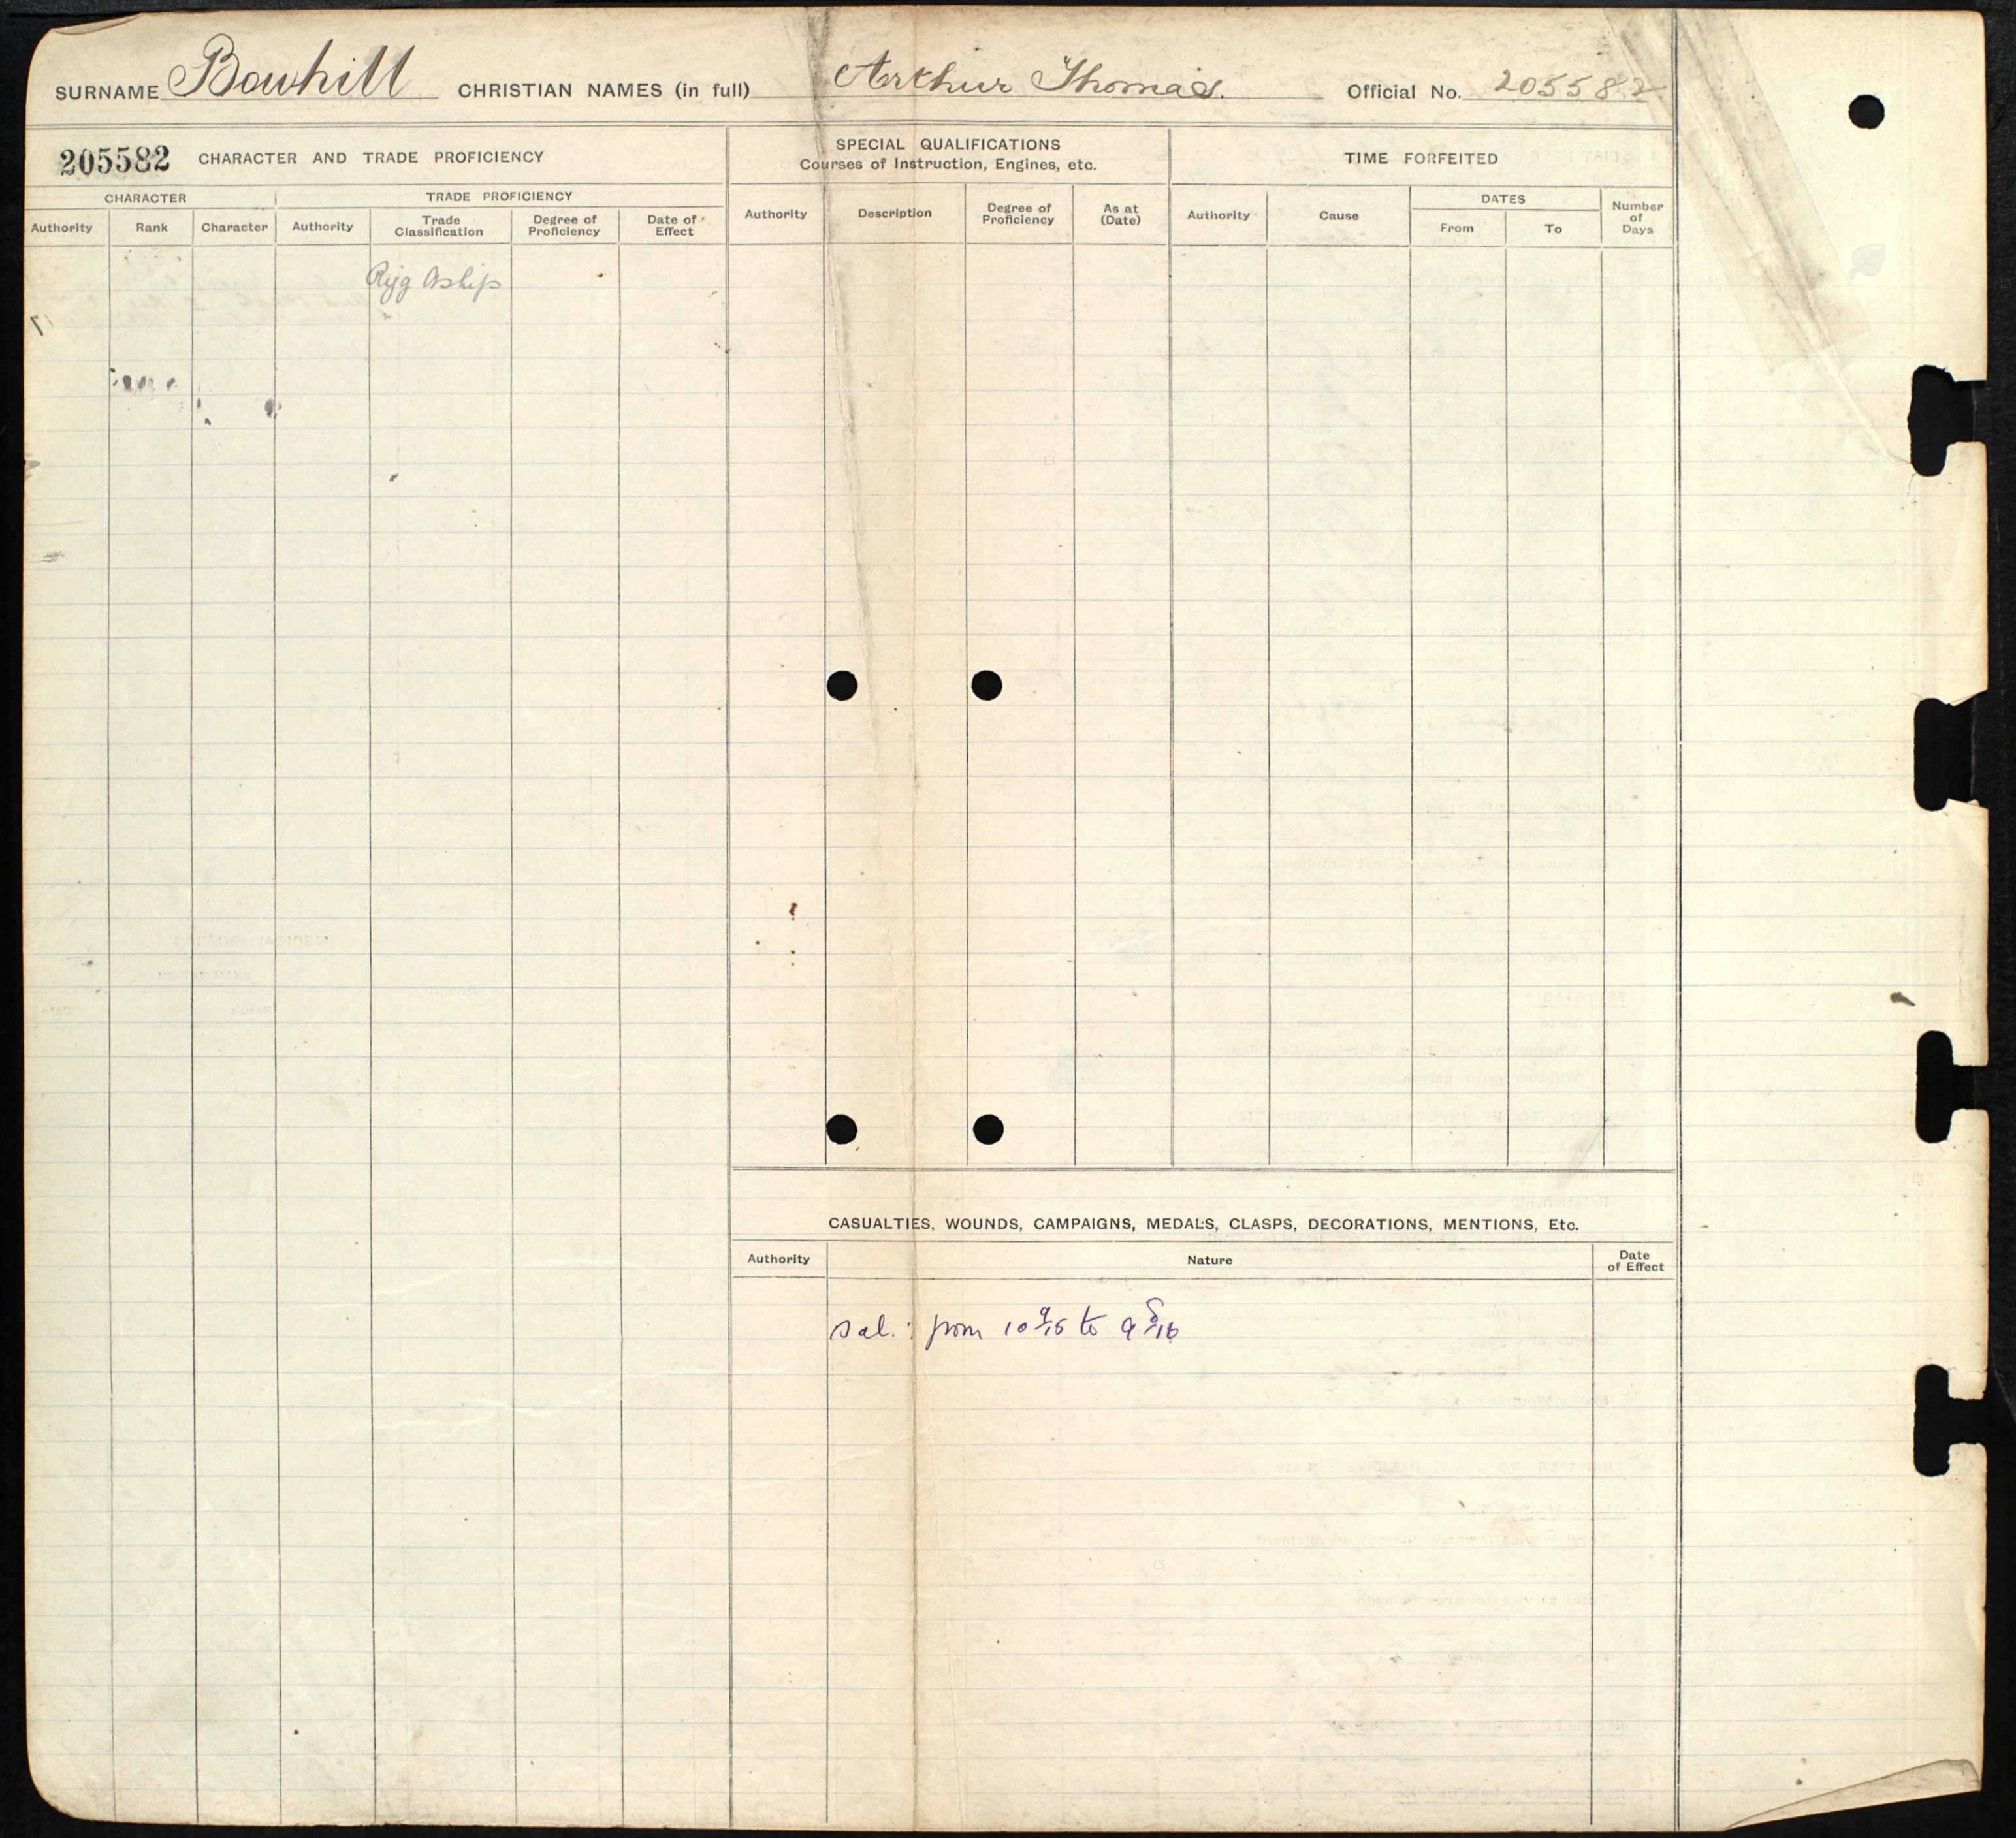 SURNAME Bowhill CHRISTIAN NAMES (in full) Arthur Thomas. Official No. 205582
205582 CHARACTER AND TRADE PROFICIENCY
SPECIAL QUALIFICATIONS
Courses of Instruction, Engines, etc.
TIME FORFEITED
CHARACTER TRADE PROFICIENCY
Authority Rank Character Authority Trade Classification Degree of Proficiency Date of Effect
Authority Description Degree of Proficiency As at (Date)
Authority Cause DATES From To Number of Days
Rigg Aship
CASUALTIES, WOUNDS, CAMPAIGNS, MEDALS, CLASPS, DECORATIONS, MENTIONS, Etc.
Authority Nature Date of Effect
from 10 9/15 to 9 5/16